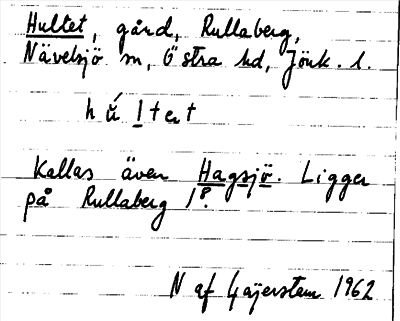 Hultet, gård, Rullaberg,
Nävelsjö sn, Östra hd, Jönk. l.
hú̆ltet
Kallas även Hagsjö. Ligger
på Rullaberg 1⁸.
N af Gajerstam 1962